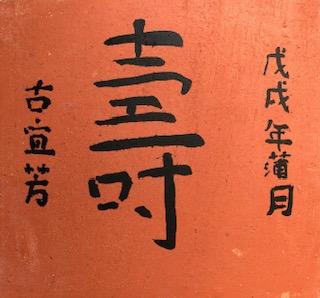 戊戌年蒲月
壽
古宜芳